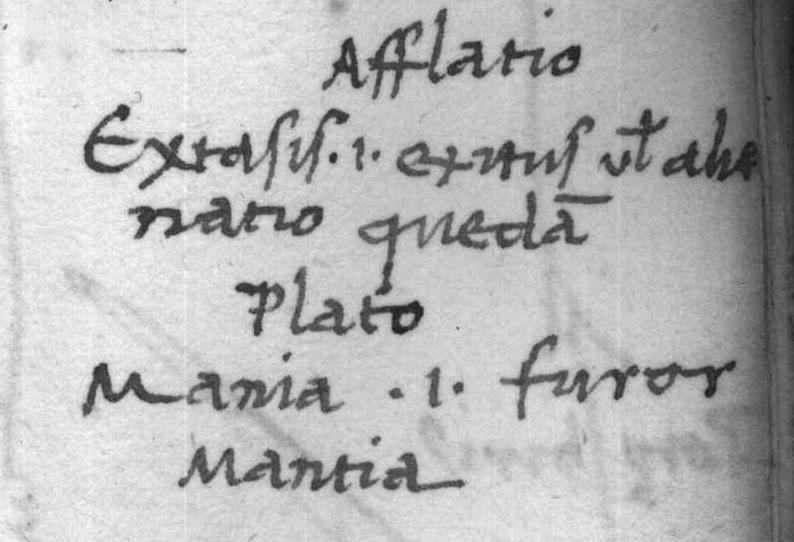 Afflatio
Extasis .i. exitus vł alie
natio quedā
Plato
Mania .i. furor
Mantia